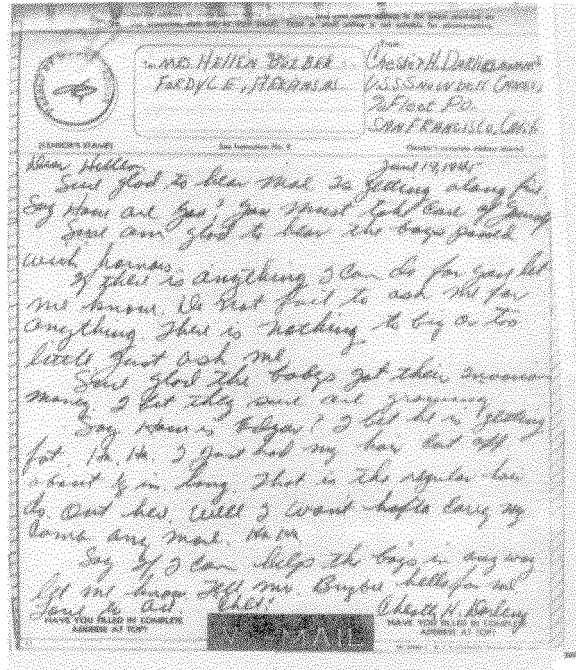 MRS HELLEN BEEBER
FORDYCE, ARKANSAS
From
Chester H. Darling
U.S.S. Snowden
% Fleet P.O.
San Francisco, Calif
(CENSOR'S STAMP)
See Instruction No. 2
(Sender's complete address above)
Dear Hellen June 19, 1945
Sure glad to hear Mae is getting along fine
Say How are you? you must take care of yourself
Sure am glad to hear the boys passed
with honors
If there is anything I can do for you let
me know. Do not fail to ask me for
anything. There is nothing to big or too
little Just ask me
Sure glad the boys got their invasion
money I bet they sure are growing
Say How is Edgar? I bet he is getting
fat. Ha. Ha. I Just had my hair cut off
about ½ in. long. That is the regular hair
do Out here. Well I won't hafta carry my
Comb any more. Ha Ha
Say If I can helps the boys in any way
let me know Tell Mr. hello for me
Love to All Chet!
Chester H. Darling
HAVE YOU FILLED IN COMPLETE
ADDRESS AT TOP?
V···MAIL
HAVE YOU FILLED IN COMPLETE
ADDRESS AT TOP?